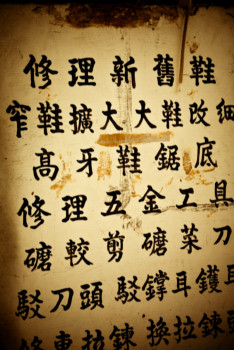 修理新舊鞋
窄鞋擴大大鞋改細
高牙鞋鋸底
修理五金工具
磨較剪磨菜刀
駁刀頭駁鑊耳
拉鍊換拉鍊